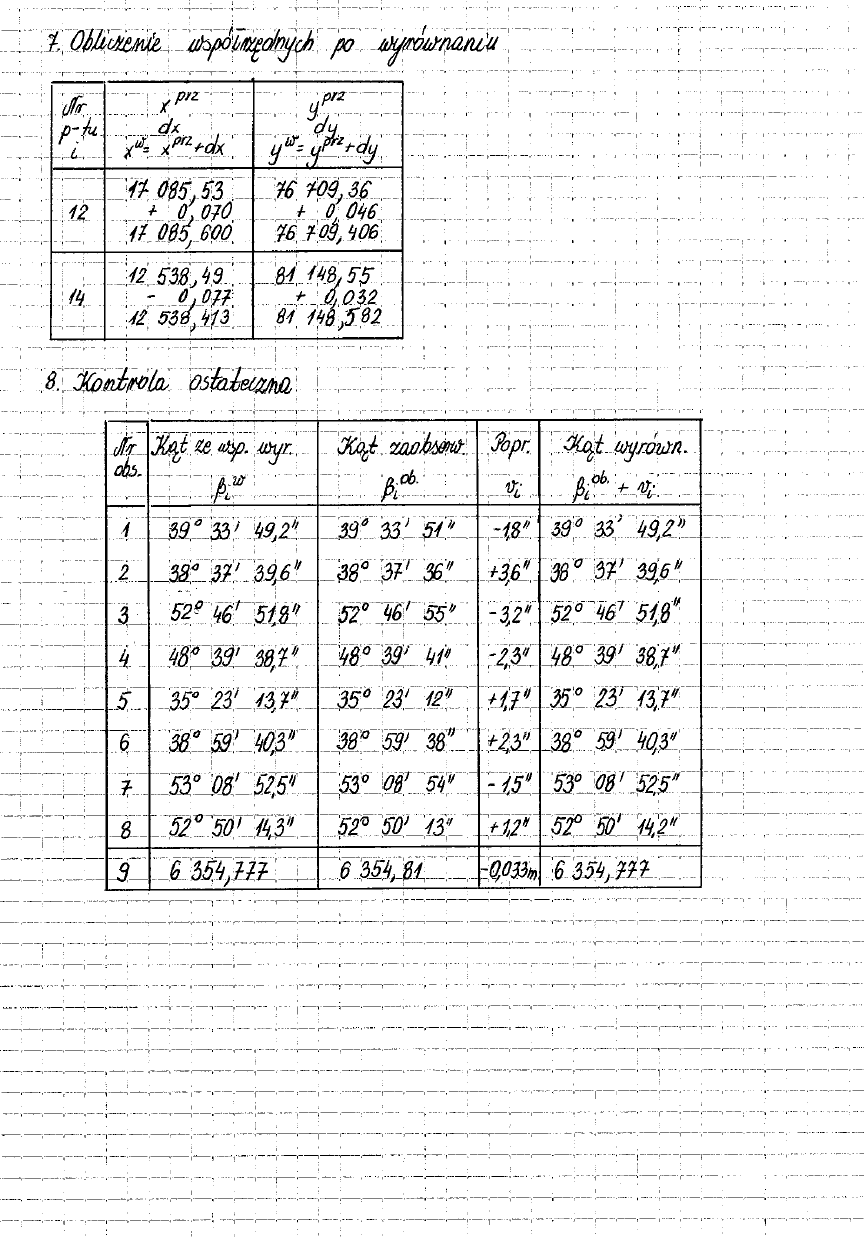 7. Obliczenie współrzędnych po wyrównaniu
Nr p-tu i | x^prz dx x^w = x^prz + dx | y^prz dy y^w = y^prz + dy
12 | 17 085,53 | 76 709,36
+ 0,070 | + 0,046
17 085,600 | 76 709,406
14 | 12 538,49 | 81 148,55
- 0,077 | + 0,032
12 538,413 | 81 148,582
8. Kontrola ostateczna
Nr obs. | Kąt ze wsp. wyr. βi^w | Kąt zaobserw. βi^ob. | Popr. vi | Kąt wyrówn. βi^ob. + vi
1 | 39° 33' 49,2" | 39° 33' 51" | -1,8" | 39° 33' 49,2"
2 | 38° 37' 39,6" | 38° 37' 36" | +3,6" | 38° 37' 39,6"
3 | 52° 46' 51,8" | 52° 46' 55" | -3,2" | 52° 46' 51,8"
4 | 48° 39' 38,7" | 48° 39' 41" | -2,3" | 48° 39' 38,7"
5 | 35° 23' 13,7" | 35° 23' 12" | +1,7" | 35° 23' 13,7"
6 | 38° 59' 40,3" | 38° 59' 38" | +2,3" | 38° 59' 40,3"
7 | 53° 08' 52,5" | 53° 08' 54" | -1,5" | 53° 08' 52,5"
8 | 52° 50' 14,3" | 52° 50' 13" | +1,2" | 52° 50' 14,2"
9 | 6 354,777 | 6 354,81 | -0,033m | 6 354,777